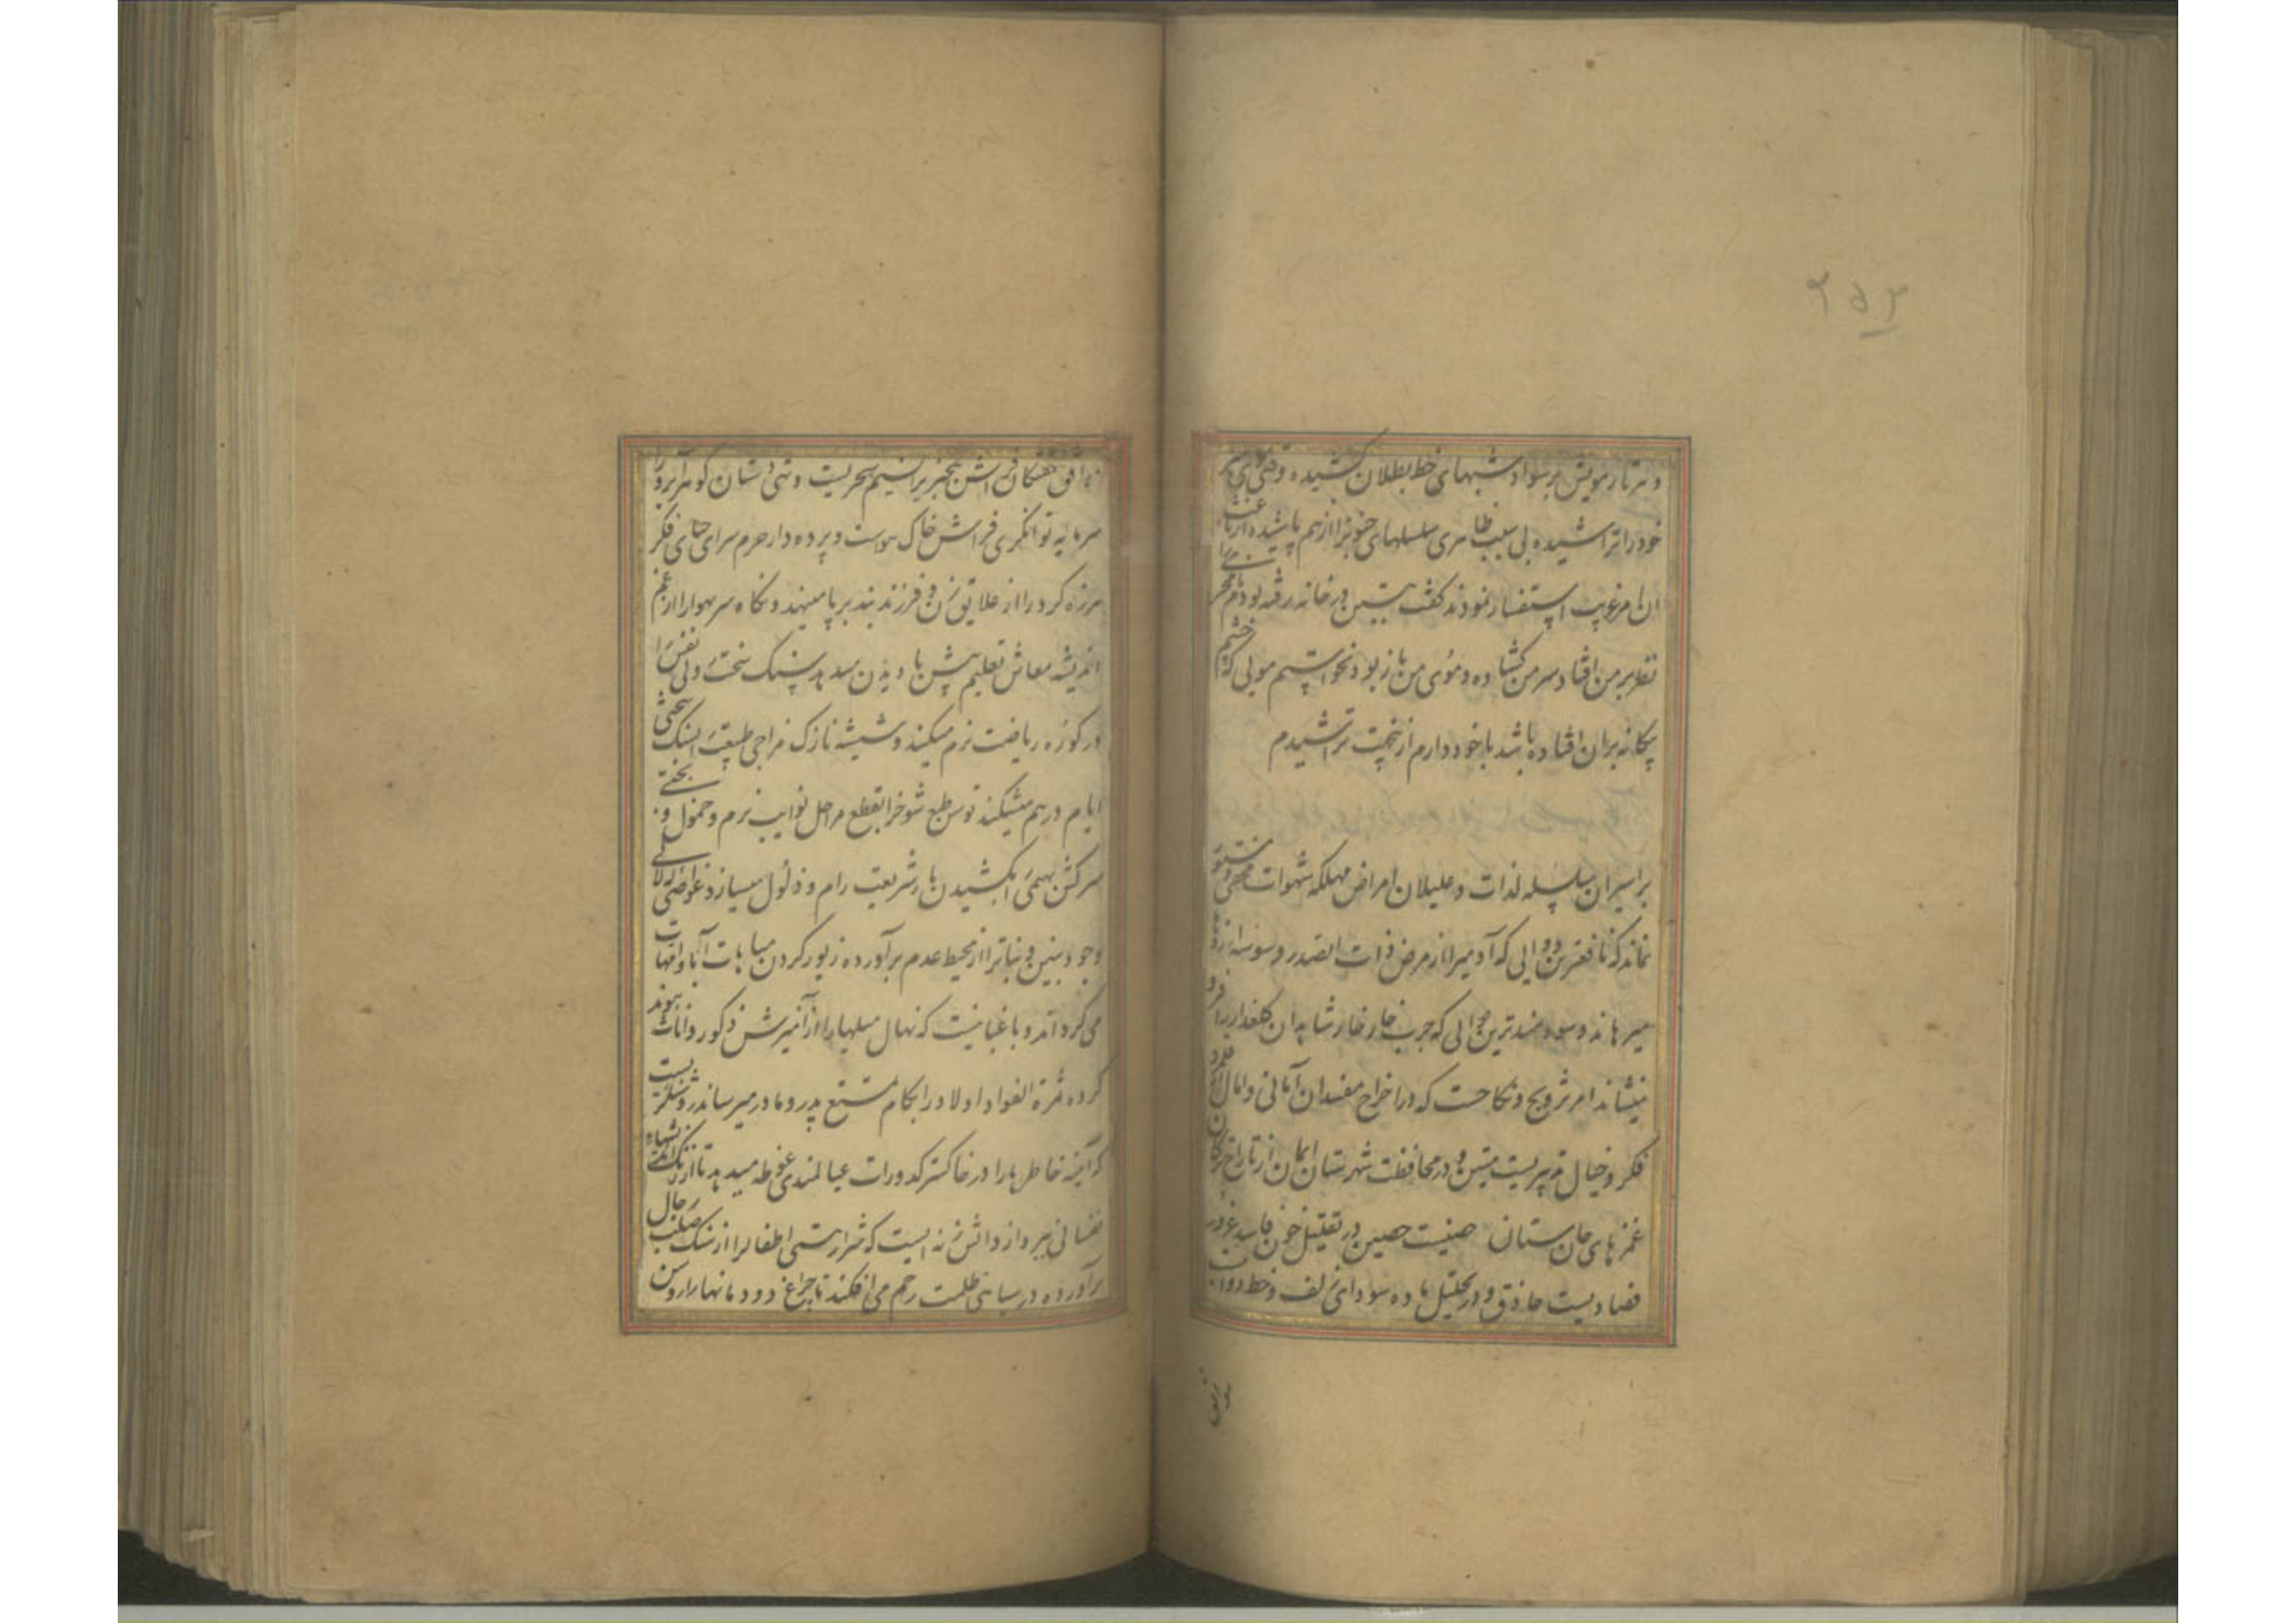 ۲۵۲
و هر تار مویش بر سواد شبهای خط بطلان کشیده وقتی موی سر
خود را تراشیده بی سبب ظاهری سلسلهای جنونرا از هم پاشیده از باعث
آن امر غریب استفسار نمودند گفت پیش ازین در خانه رفته بودم نامحرم
نظر بر من افتاد و سر من گشاده و موی من باز بود نخواستم مویی که چشم
بیگانه بر آن افتاده باشد با خود دارم از بیخت تراشیدم
بر اسیران سلسله لذات و علیلان امراض مهلکه شهوات مخفی و مستور
نماند که نافعترین دوایی که آدمیرا از مرض ذات الصدر وسوسه
میرهاند و سودمندترین که جرب خار خار شاهدان گلعذار را فرو
مینشاند امر تزویج و نکاحست که در اخراج مفسدان آمانی و آمال از قلمرو
فکر و خیال تدبیریست متین و در محافظت شهرستان ایمان از تاراج ترکان
غمزهای جان ستان حصنیست حصین در تقلیل خون فاسد غرور
فصادیست حاذق و در تحلیل ماده سودای زلف و خط
موافق
موافق خفتگان فراش بیخبریرا نسیم سحریست و تهی دستان گوهر آبرو را
سرمایه توانگری فراش خاک هواست و پرده دار حرم سرای حیای فکر
هرزه گرد را از علایق زن و فرزند بند بر پا مینهد و نگاه سر بهوا را از غم
اندیشه معاش تعلیم پیش پا دیدن میدهد سنگ سخت دلی نفس را
در کوره ریاضت نرم میکند و شیشه نازک مزاجی طبیعت را بسنگ سختی
ایام در هم میشکند توسن طبع شوخ را بقطع مراحل نوایب نرم و حمول و
سرکش بهیمی را بکشیدن بار شریعت رام و ذلول میسازد غواصی لآلی
وجود بنین و بنات را از محیط عدم برآورده زیور گردن مباهات آبا و امهات
می گرداند و باغبانیست که نهال نسلها را از آمیزش ذکور و اناث پیوند
کرده ثمرة الفواد اولاد را بکام تمتع پدر و مادر میرساند روشنگریست
که آینه خاطرها را در خاکستر کدورات عیالمندی غوطه میدهد تا از زنگ
نفسانی بپردازد و آتش زنه ایست که شرار هستی اطفال را از سنگ صلب رجال
برآورده در سیاهی ظلمت رحم می افکند تا چراغ دودمانها را روشن